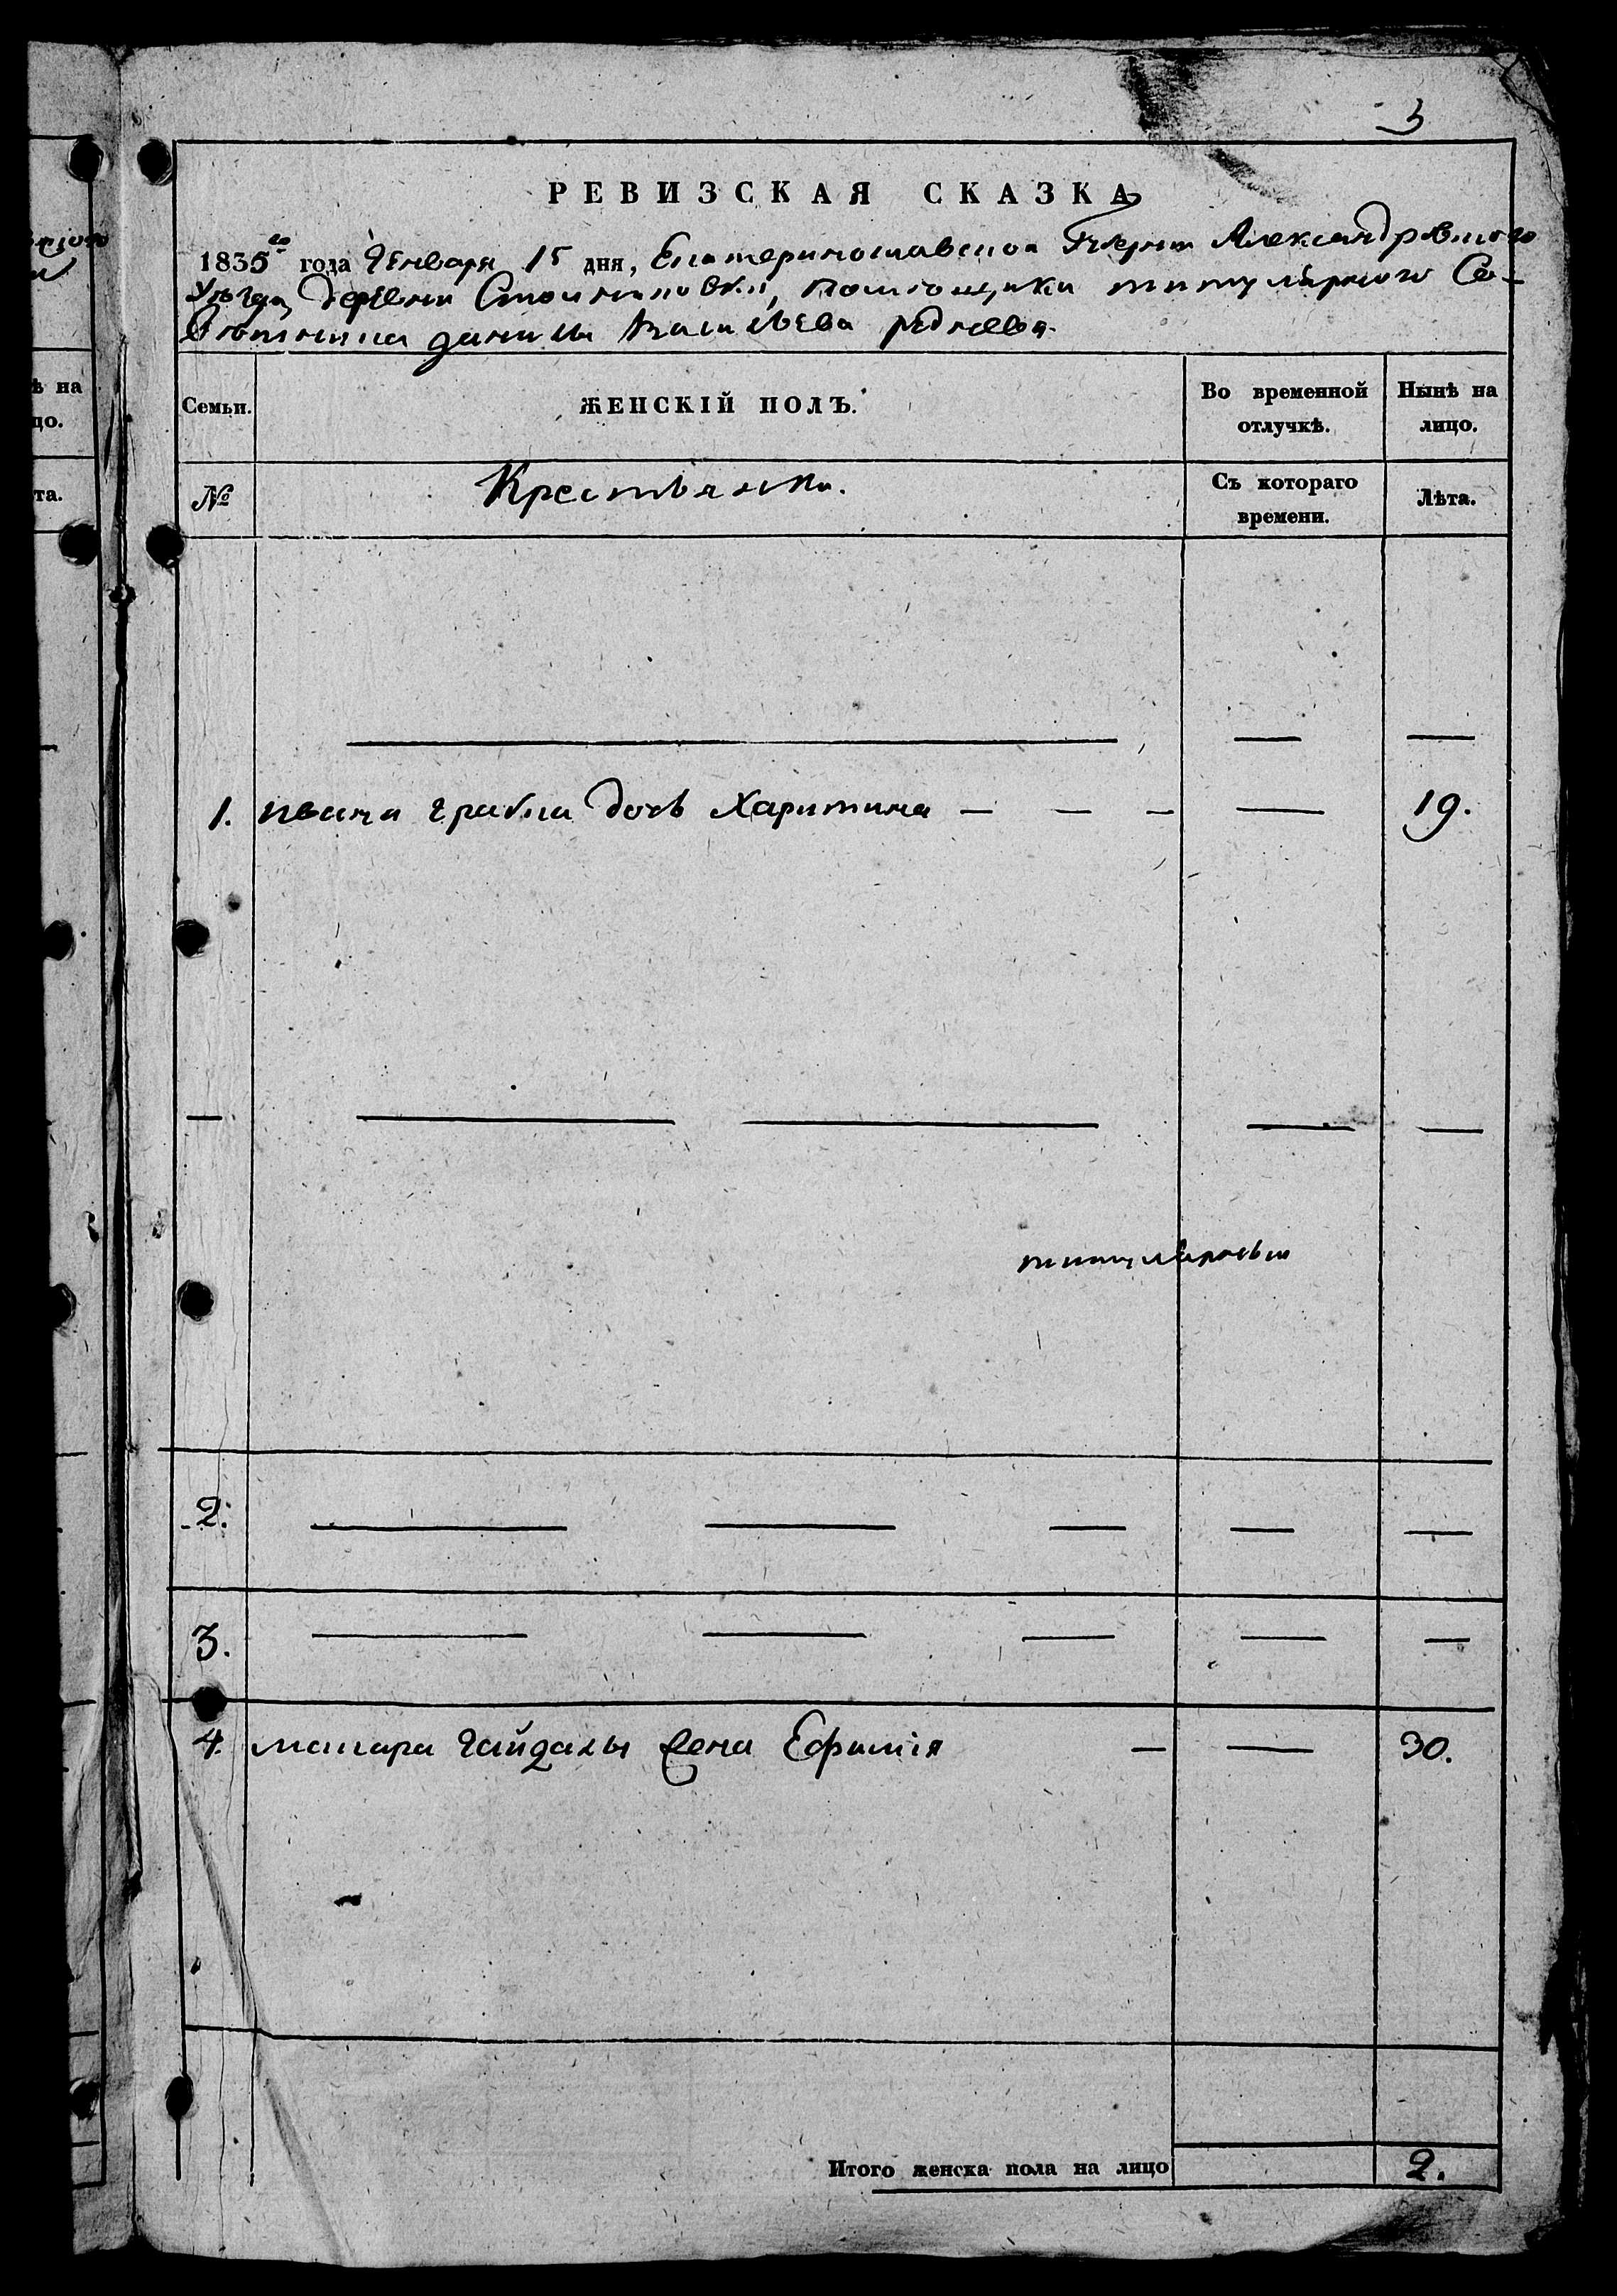 3
РЕВИЗСКАЯ СКАЗКА
1835го года Генваря 15 дня, Екатеринославской Губернии Александровского
Уѣзда, деревни помѣщика титулярного Со-
вѣтника данилы Васильева
Семьи.
ЖЕНСКІЙ ПОЛЪ.
Во временной отлучкѣ.
Нынѣ на лицо.
№
Крестьянки.
Съ котораго времени.
Лѣта.
1. ивана дочь Харитина — — — — 19.
титулярный
2.
3.
4. макара гайдамы жена Ефимія — — 30.
Итого женска пола на лицо 2.
ѣ на
цо.
та.